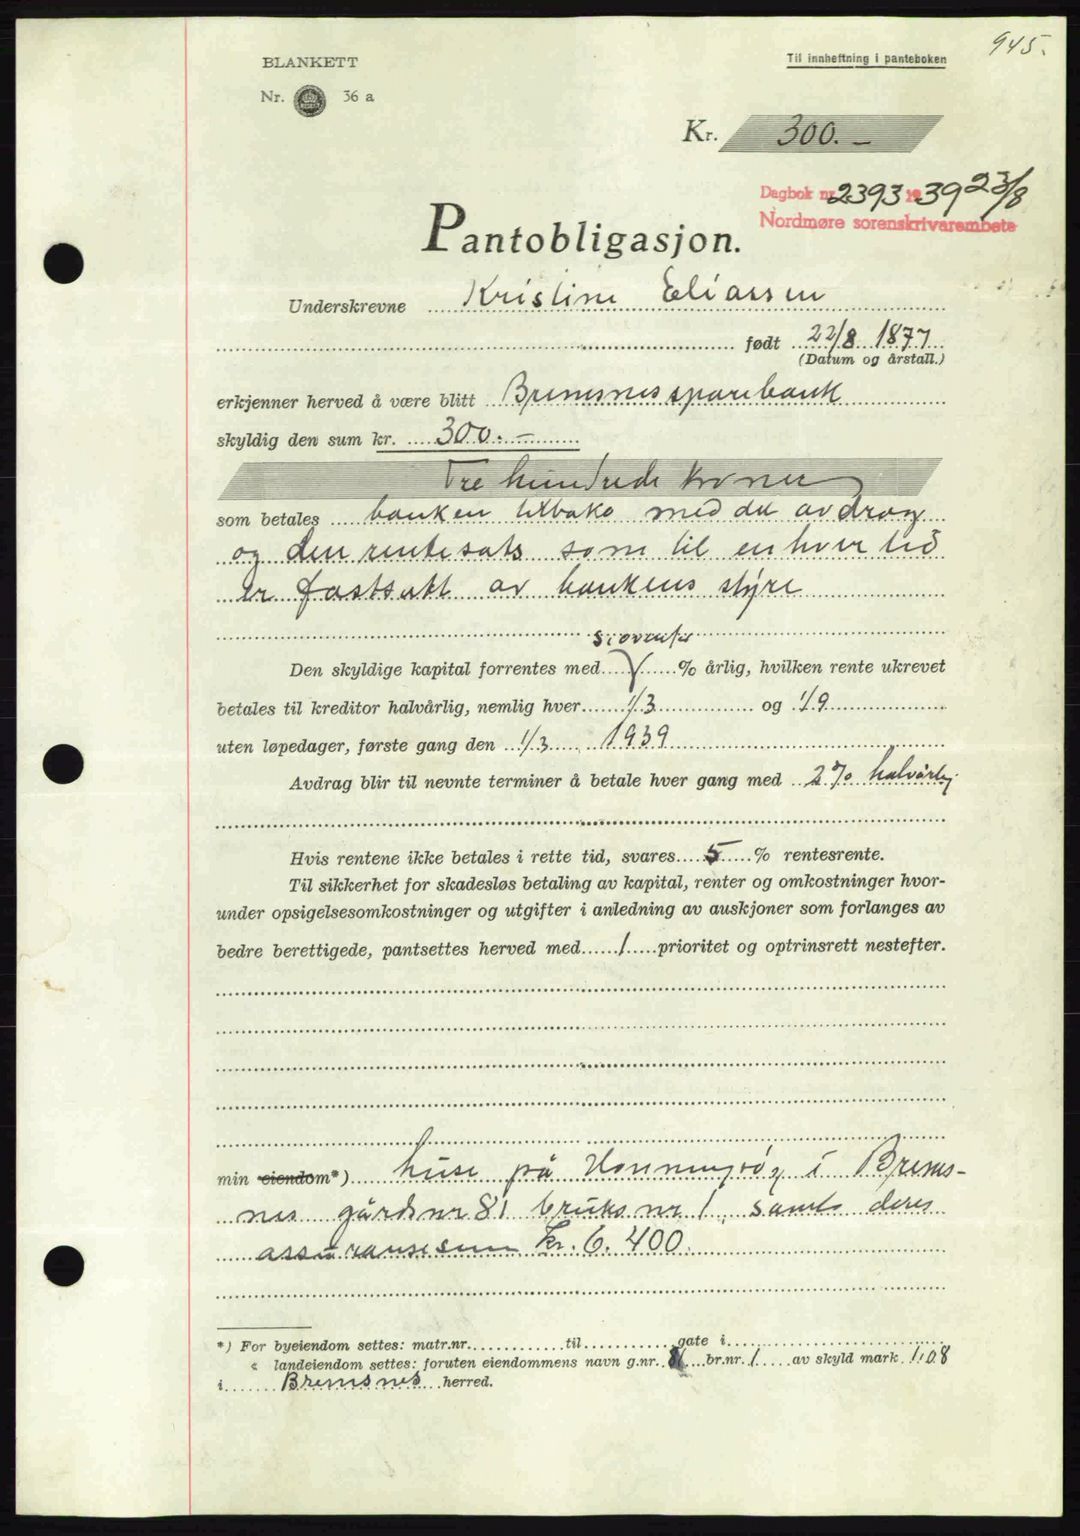 945.
BLANKETT
Til innheftning i panteboken
Nr. 36 a
Kr. 300.-
Dagbok nr. 2393 1939 23/8
Nordmøre sorenskrivarembete
Pantobligasjon.
Underskrevne Kristine Eliassen
født 22/8 1877
(Datum og årstall.)
erkjenner herved å være blitt Bremsnes sparebank
skyldig den sum kr. 300.-
Tre hundrede kroner
som betales banken tilbake med det avdrag
og den rentesats som til enhver tid
er fastsatt av bankens styre
Den skyldige kapital forrentes med % årlig, hvilken rente ukrevet
betales til kreditor halvårlig, nemlig hver 1/3 og 1/9
uten løpedager, første gang den 1/3 1939
Avdrag blir til nevnte terminer å betale hver gang med 2% halvårlig
Hvis rentene ikke betales i rette tid, svares 5 % rentesrente.
Til sikkerhet for skadesløs betaling av kapital, renter og omkostninger hvor-
under opsigelsesomkostninger og utgifter i anledning av auskjoner som forlanges av
bedre berettigede, pantsettes herved med 1 prioritet og optrinsrett nestefter.
min eiendom*) huse på i Brems-
nes gårdsnr 81 bruksnr 1, samt deres
assuransesum kr. 6.400.
*) For byeiendom settes: matr.nr. til gate i
« landeiendom settes: foruten eiendommens navn g.nr. 81 br.nr. 1 av skyld mark 1.08
i Bremsnes herred.